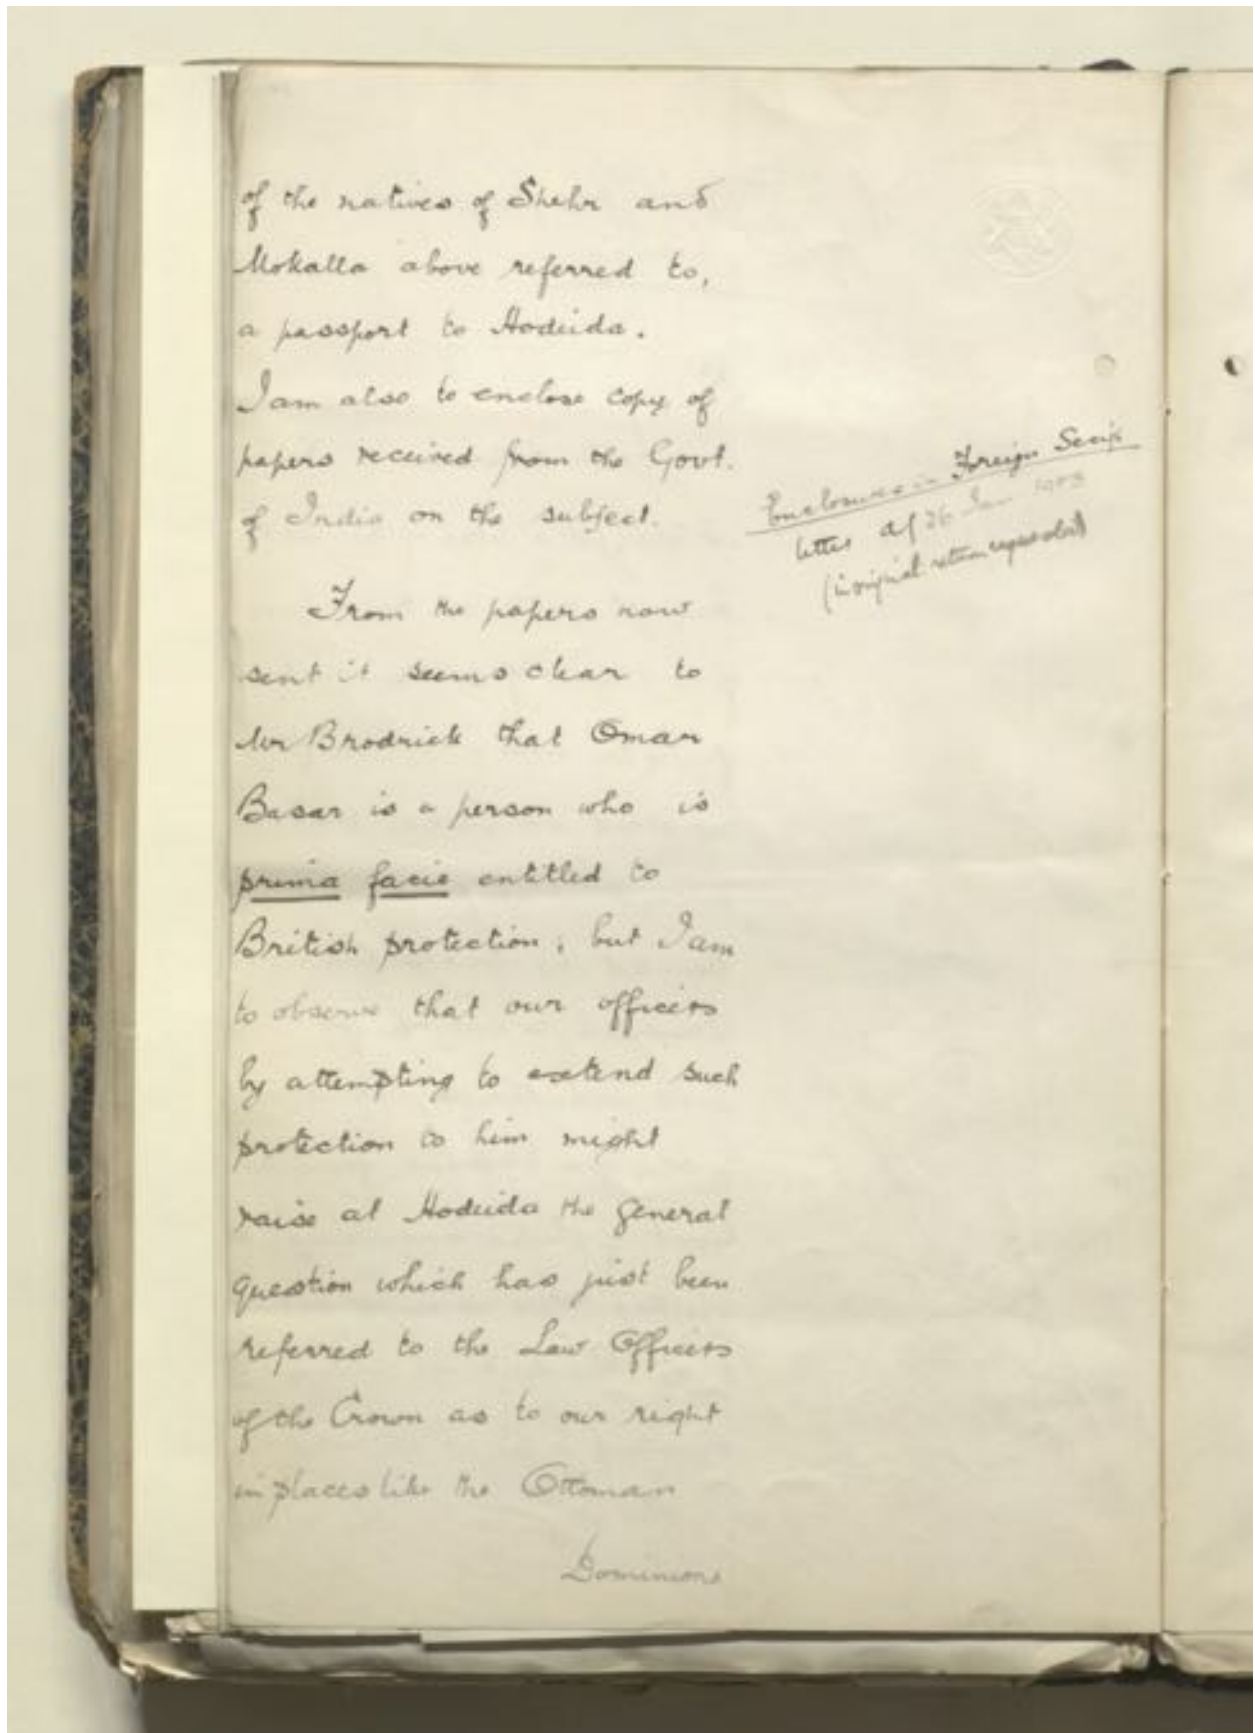 of the natives of Shehr and
Mokalla above referred to,
a passport to Hodeida.
I am also to enclose copy of
papers received from the Govt.
of India on the subject.
Enclosures in Foreign Secy's
letter of 26 Jan 1903
(in original return requested)
From the papers now
sent it seems clear to
Mr Brodrick that Omar
Basar is a person who is
prima facie entitled to
British protection; but I am
to observe that our officers
by attempting to extend such
protection to him might
raise at Hodeida the general
question which has just been
referred to the Law Officers
of the Crown as to our right
in places like the Ottoman
Dominions